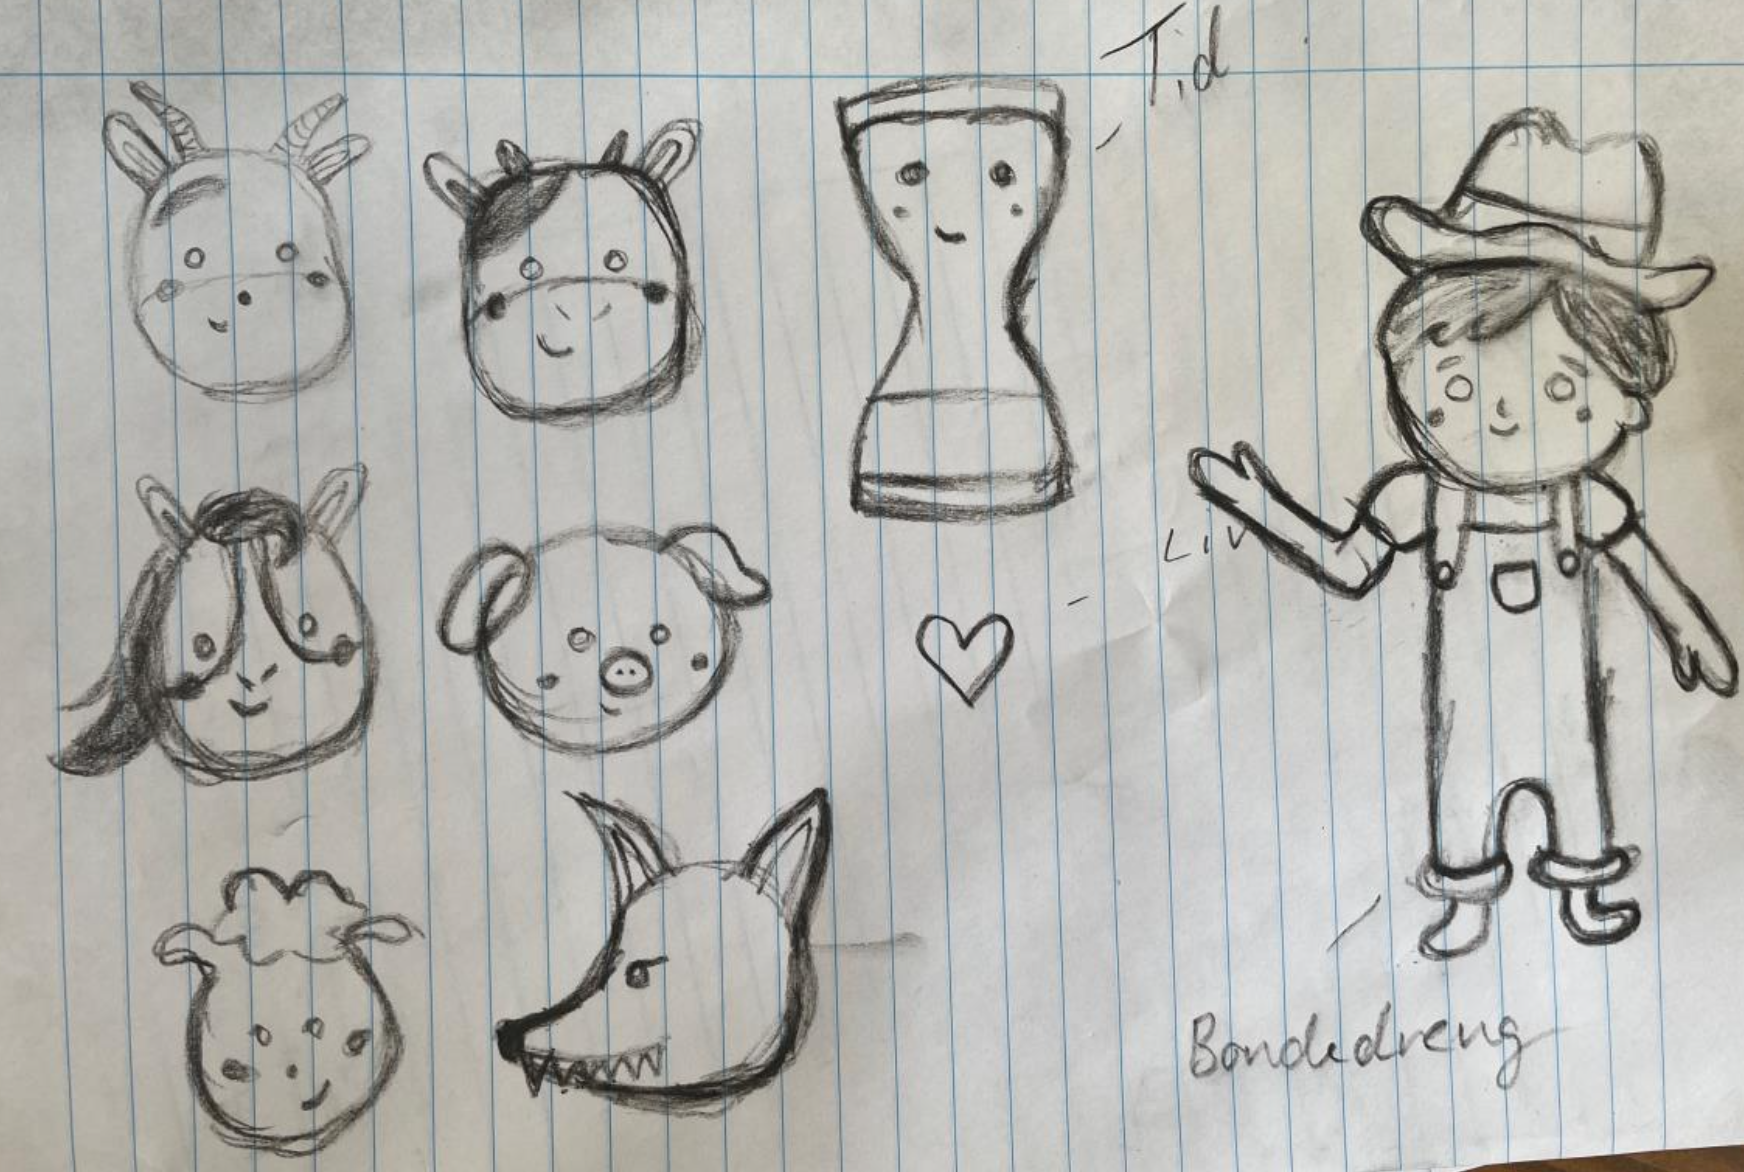 Tid
Liv
Bondedreng